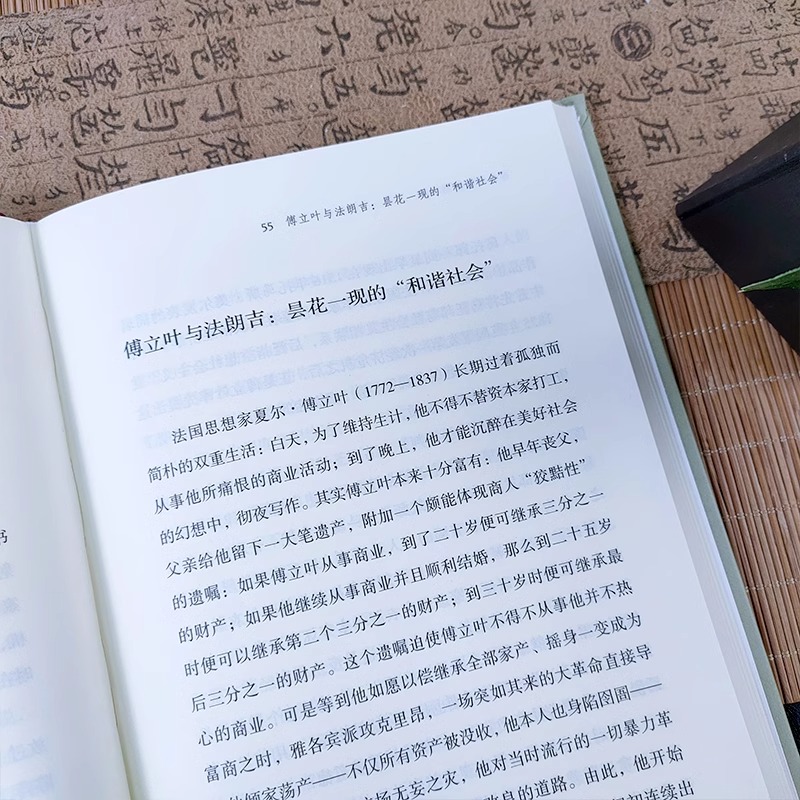 55 傅立叶与法朗吉：昙花一现的“和谐社会”
傅立叶与法朗吉：昙花一现的“和谐社会”
法国思想家夏尔·傅立叶（1772—1837）长期过着孤独而
简朴的双重生活：白天，为了维持生计，他不得不替资本家打工，
从事他所痛恨的商业活动；到了晚上，他才能沉醉在美好社会
的幻想中，彻夜写作。其实傅立叶本来十分富有：他早年丧父，
父亲给他留下一大笔遗产，附加一个颇能体现商人“狡黠性”
的遗嘱：如果傅立叶从事商业，到了二十岁便可继承三分之一
的财产；如果他继续从事商业并且顺利结婚，那么到二十五岁
时便可以继承第二个三分之一的财产；到三十岁时便可继承最
后三分之一的财产。这个遗嘱迫使傅立叶不得不从事他并不热
心的商业。可是等到他如愿以偿继承全部家产、摇身一变成为
富商之时，雅各宾派攻克里昂，一场突如其来的大革命直接导
他倾家荡产——不仅所有资产被没收，他本人也身陷囹圄——
场无妄之灾，他对当时流行的一切暴力革
息的道路。由此，他开始
初连续出
书